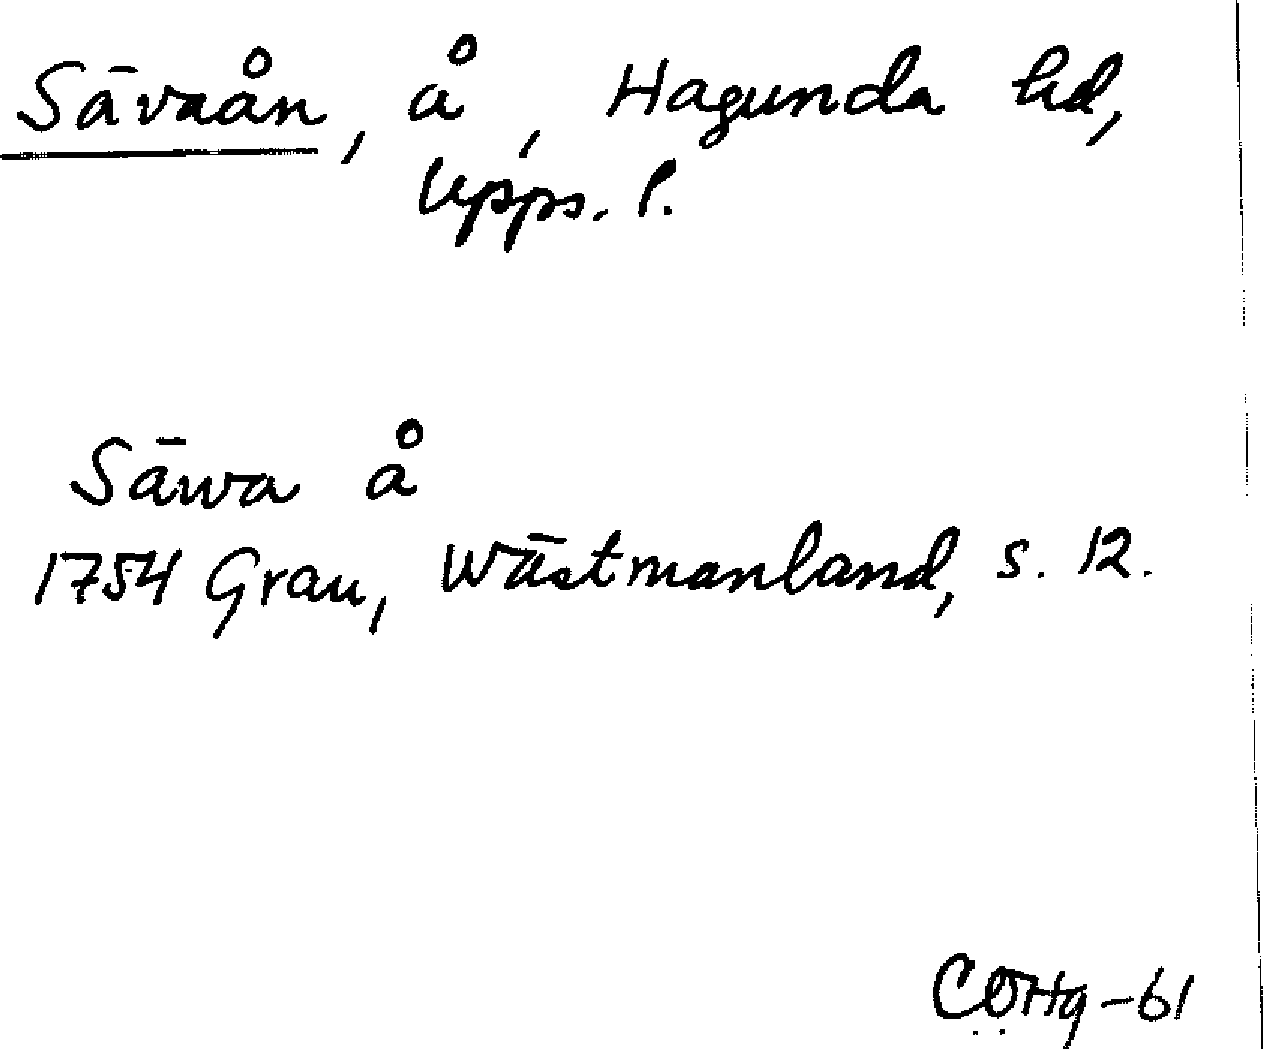 Sävaån, å, Hagunda hd,
Upps. l.
Säwa å
1754 Grau, Wästmanland, s. 12.
CÖHg-61